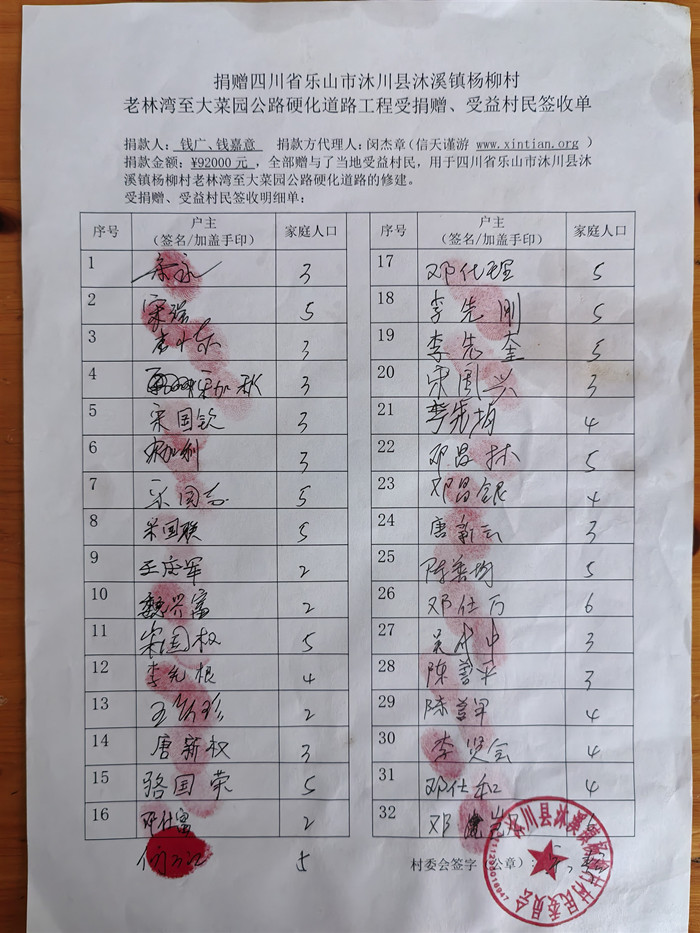 捐赠四川省乐山市沐川县沐溪镇杨柳村
老林湾至大菜园公路硬化道路工程受捐赠、受益村民签收单
捐款人: 钱广、钱嘉意 捐款方代理人: 闵杰章(信天谨游 www.xintian.org )
捐款金额: ¥92000元 ,全部赠与了当地受益村民,用于四川省乐山市沐川县沐
溪镇杨柳村老林湾至大菜园公路硬化道路的修建。
受捐赠、受益村民签收明细单:
序号 户主 (签名/加盖手印) 家庭人口
1 3
2 宋强 5
3 3
4 宋加秋 3
5 宋国钦 3
6 3
7 宋国志 5
8 宋国联 5
9 王庆军 2
10 魏兴富 2
11 宋国权 5
12 李先根 4
13 2
14 唐新权 3
15 骆国荣 5
16 邓仕富 2
5
序号 户主 (签名/加盖手印) 家庭人口
17 邓代理 5
18 李先刚 5
19 李先奎 5
20 宋国兴 3
21 李先梅 4
22 邓昌林 5
23 邓昌银 4
24 唐新云 3
25 陈善均 5
26 邓仕万 6
27 3
28 陈善平 3
29 陈善军 4
30 李贤会 4
31 邓仕和 4
32 邓
村委会签字(公章):
沐川县沐溪镇杨柳村村民委员会